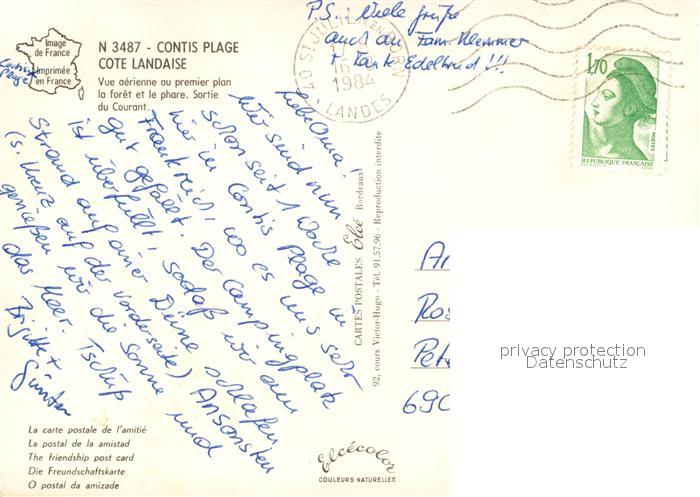 Image
de France
Imprimée
en France
Contis
Plage
N 3487 - CONTIS PLAGE
COTE LANDAISE
Vue aérienne au premier plan
la forêt et le phare. Sortie
du Courant.
P.S.: Viele Grüße
auch an Fam. Klemmer
+ Tante Edeltrud !!!
40 ST JULIEN EN BORN
16
1984
LANDES
1,70
REPUBLIQUE FRANÇAISE
POSTES
Liebe Oma!
Wir sind nun
schon seit 1 Woche
hier in Contis Plage in
Frankreich, wo es uns sehr
gut gefällt. Der Campingplatz
ist überfüllt, sodaß wir am
Strand auf einer Düne schlafen
(s. Kreuz auf der Vorderseite) Ansonsten
genießen wir die Sonne und
das Meer. Tschüß
Brigitte +
Günter
CARTES POSTALES Elcé Bordeaux
92, cours Victor-Hugo - Tél. 91.57.96 - Reproduction interdite
Pete
690
privacy protection
Datenschutz
La carte postale de l'amitié
La postal de la amistad
The friendship post card
Die Freundschaftskarte
O postal da amizade
Elcécolor
COULEURS NATURELLES